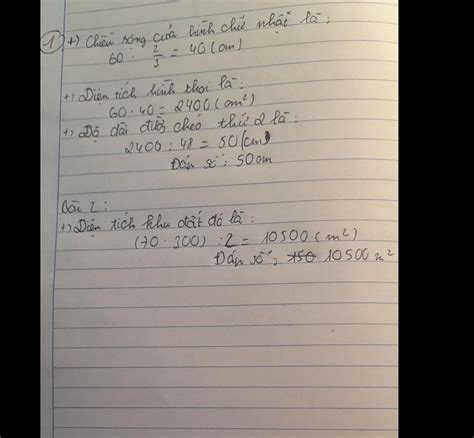 1 +) Chiều rộng của hình chữ nhật là:
60 : 2/3 = 40 (cm)
+) Diện tích hình thoi là:
60 . 40 = 2400 (cm²)
+) Độ dài đường chéo thứ 2 là:
2400 : 48 = 50 (cm)
Đáp số: 50cm
Bài 2:
+) Diện tích khu đất đó là:
(70 . 300) : 2 = 10500 (m²)
Đáp số: 10500 m²